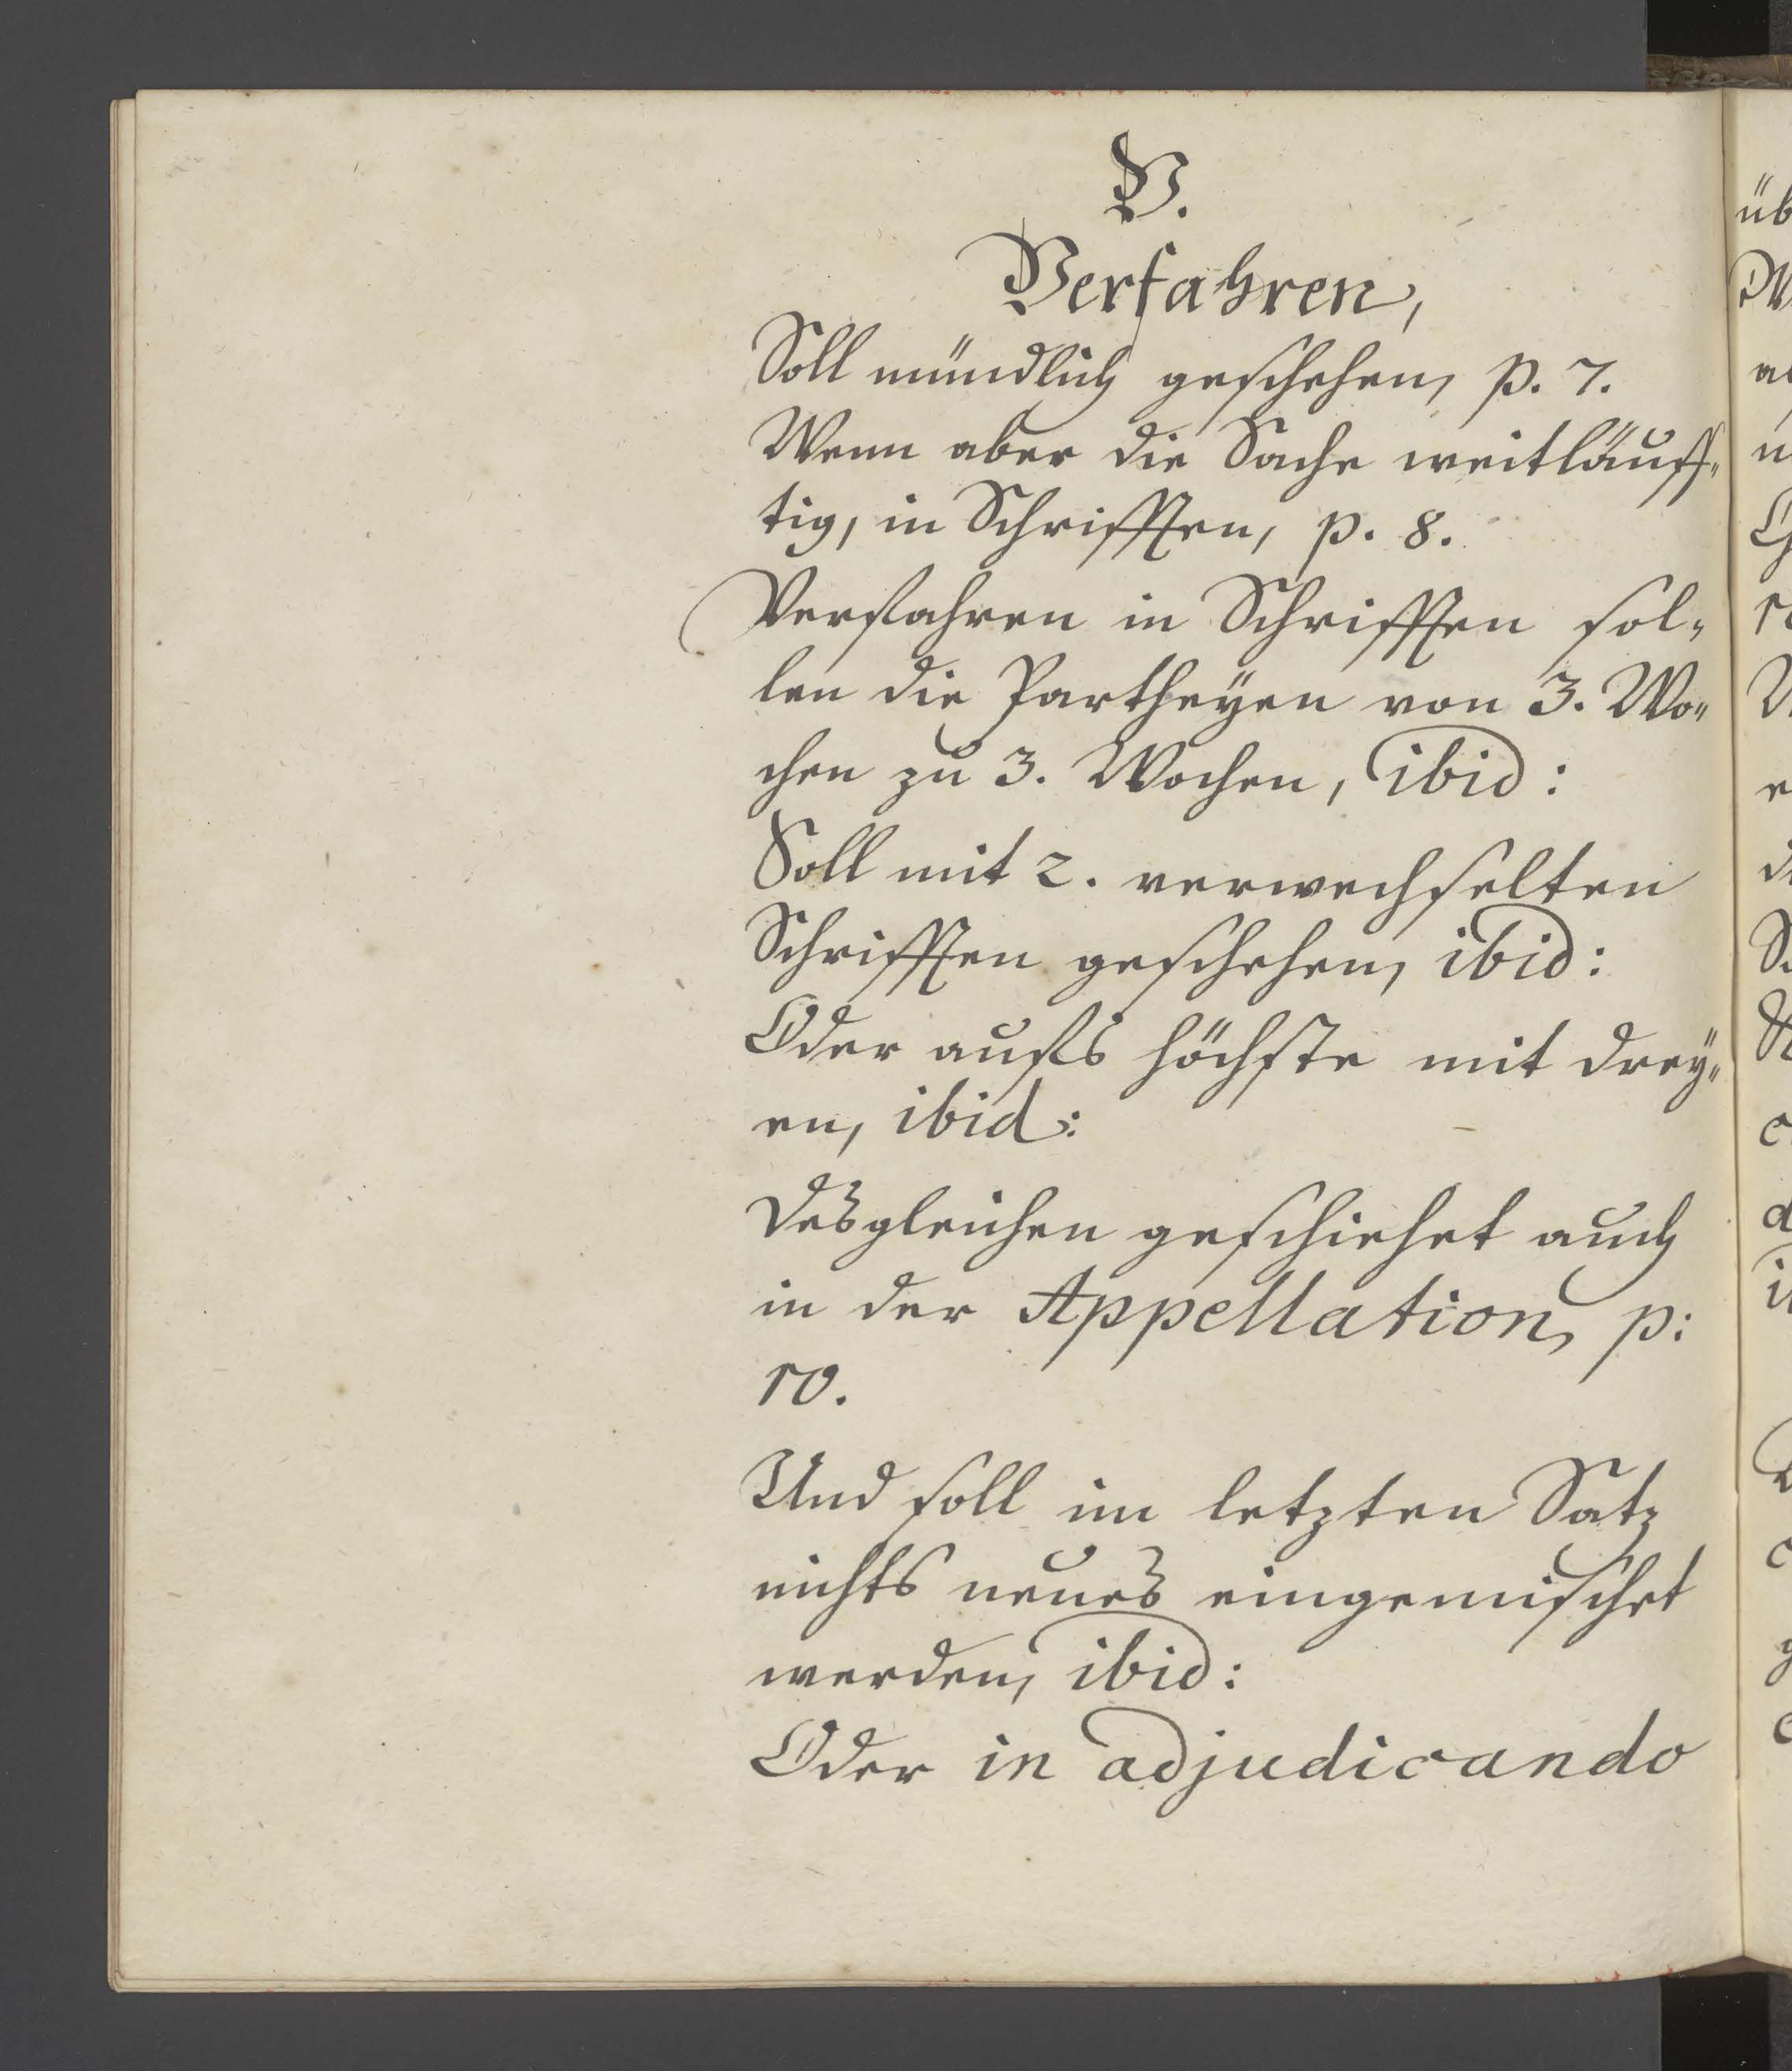 V.
Verfahren,
Soll mündlich geschehen, p. 7.
Wenn aber die Sache weitläuff„
tig, in Schrifften, p. 8.
Verfahren in Schrifften sol„
len die Partheyen von 3. Wo„
chen zu 3. Wochen, ibid:
Soll mit 2. verwechselten
Schrifften geschehen, ibid:
Oder aufs höchste mit drey„
en, ibid:
Desgleichen geschiehet auch
in der Appellation, p:
10.
Und soll im letzten Satz
nichts neues eingemischet
werden, ibid:
Oder in adjudicando